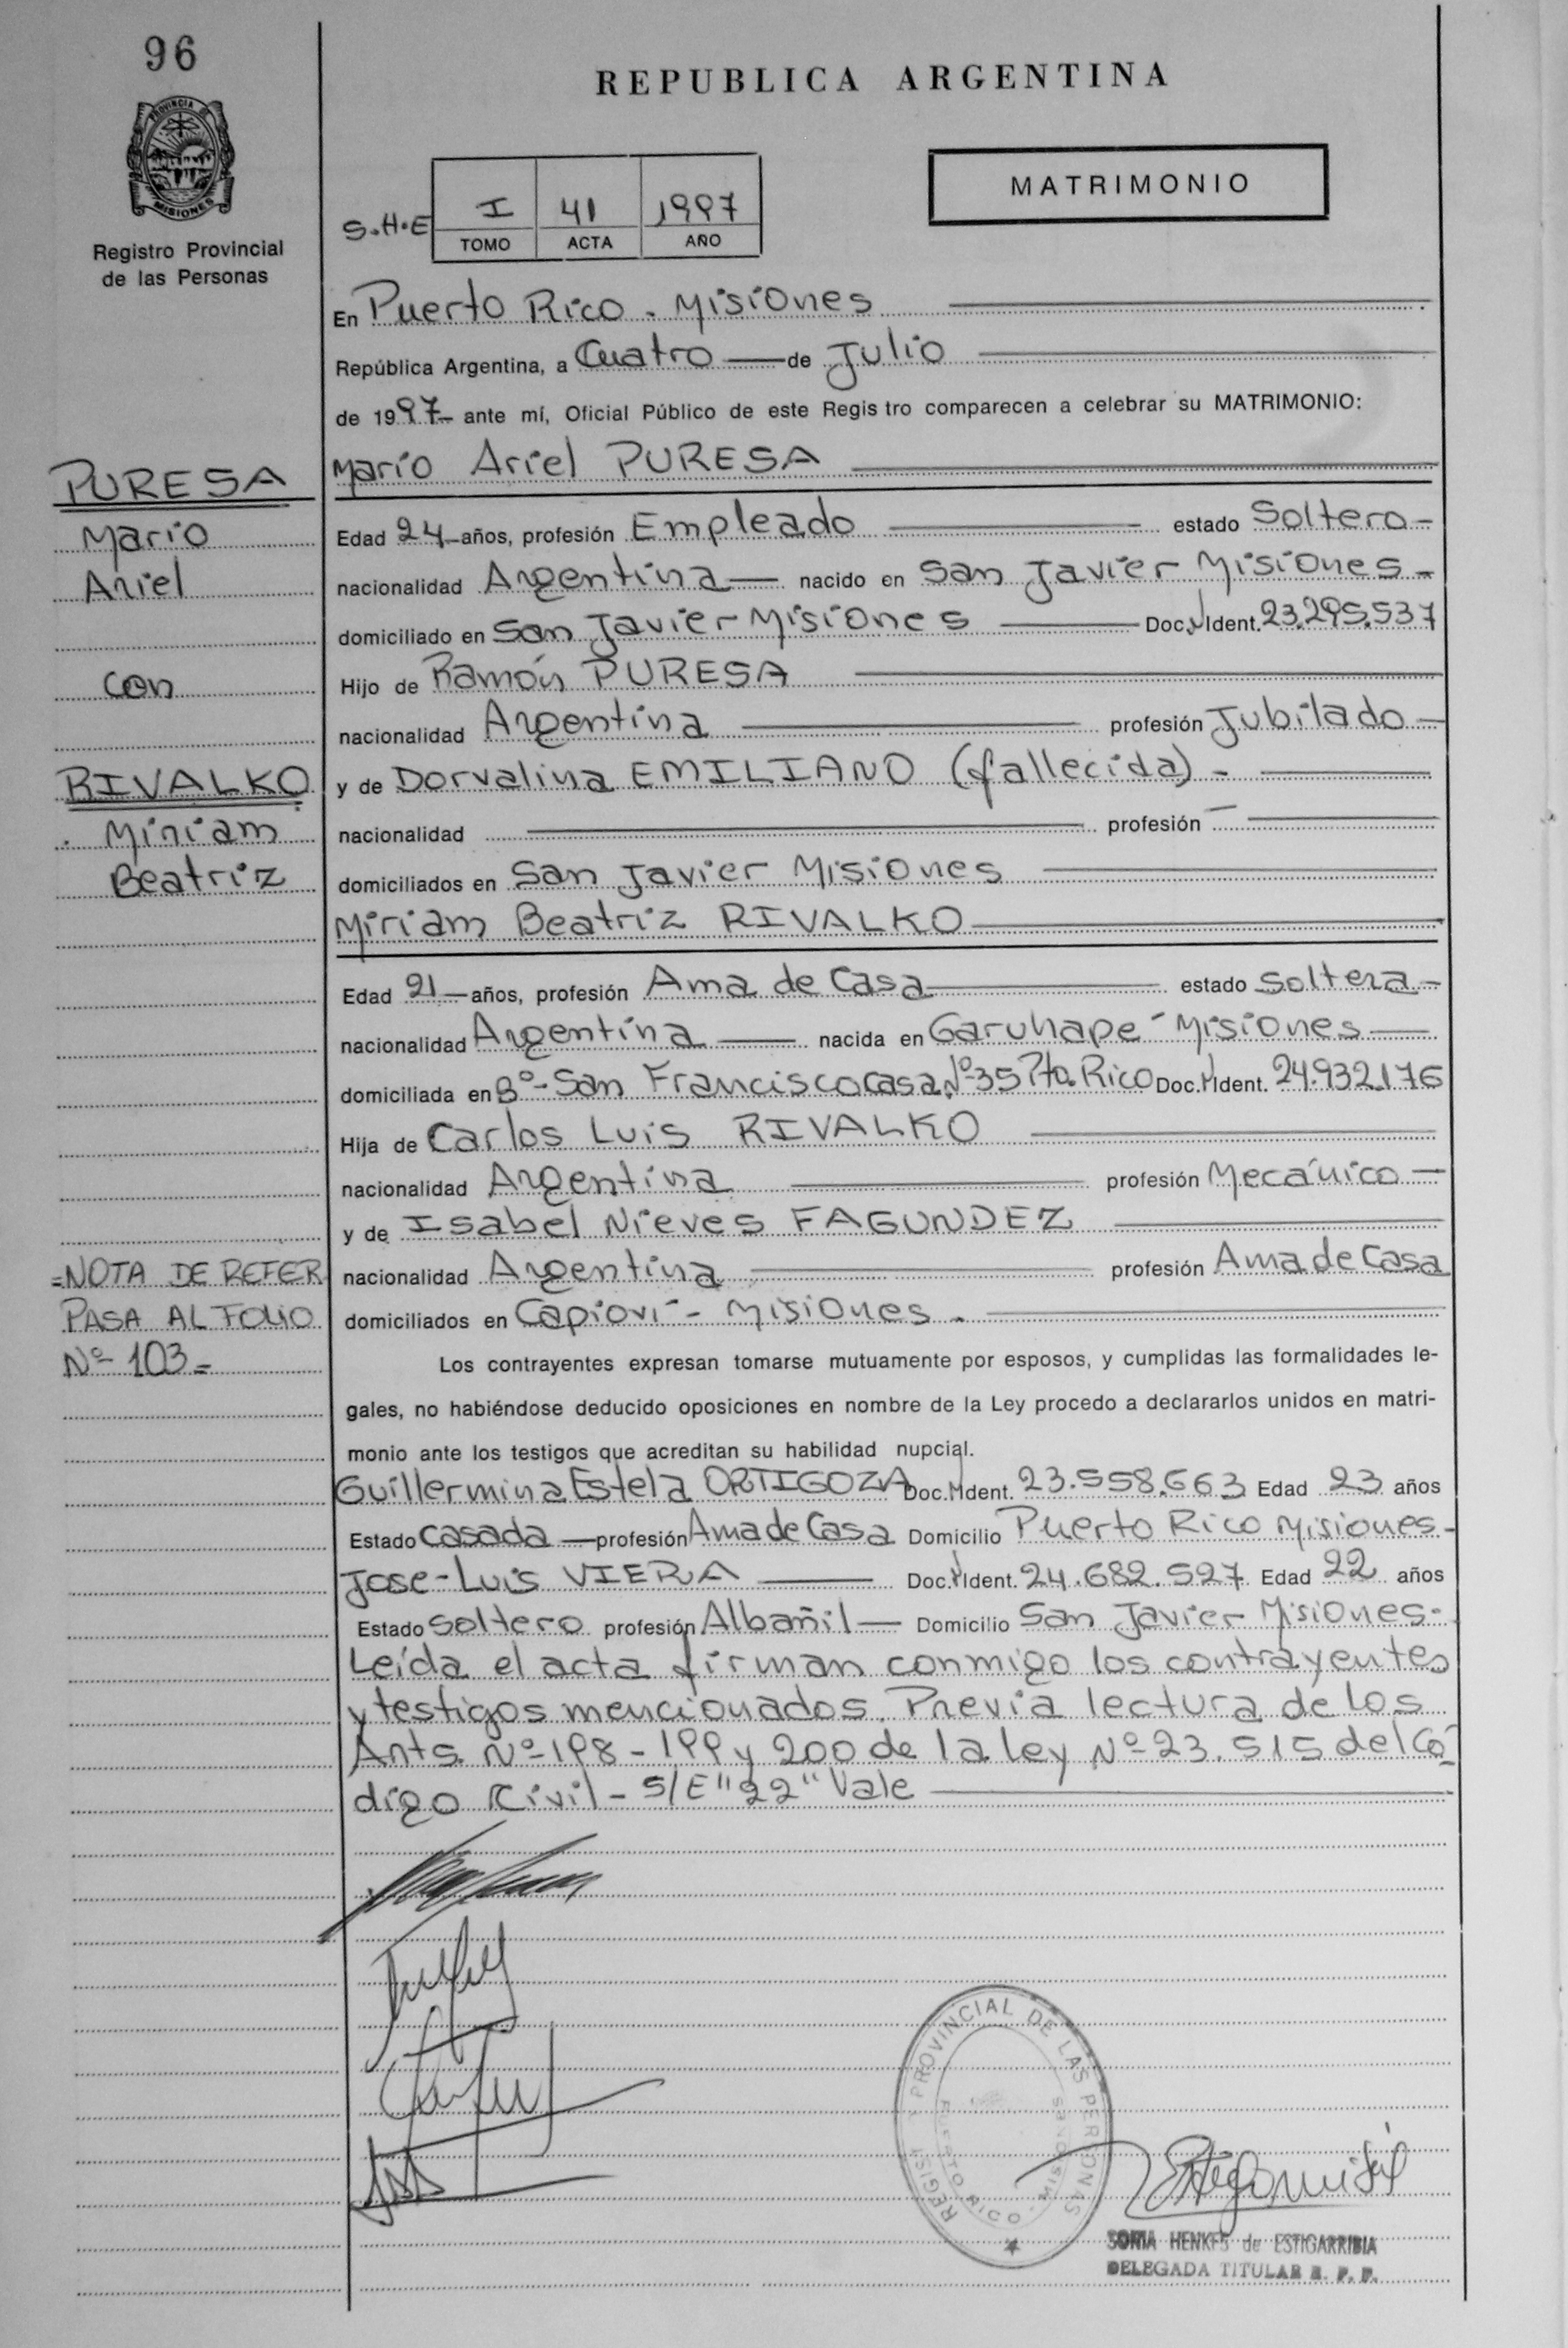 96
PROVINCIA
MISIONES
Registro Provincial
de las Personas
REPUBLICA ARGENTINA
MATRIMONIO
S.H.E
I 41 1997
TOMO ACTA AÑO
En Puerto Rico. Misiones
República Argentina, a Cuatro de Julio
de 1997 ante mí, Oficial Público de este Registro comparecen a celebrar su MATRIMONIO:
Mario Ariel PURESA
Edad 24 años, profesión Empleado estado Soltero
nacionalidad Argentina nacido en San Javier Misiones
domiciliado en San Javier Misiones Doc. Ident. 23.295.537
Hijo de Ramón PURESA
nacionalidad Argentina profesión Jubilado
y de Dorvalina EMILIANO (fallecida)
nacionalidad profesión
domiciliados en San Javier Misiones
Miriam Beatriz RIVALKO
Edad 21 años, profesión Ama de Casa estado Soltera
nacionalidad Argentina nacida en Garuhape - Misiones
domiciliada en Bº San Francisco Casa Nº 35 Pto. Rico Doc. Ident. 24.932.176
Hija de Carlos Luis RIVALKO
nacionalidad Argentina profesión Mecánico
y de Isabel Nieves FAGUNDEZ
nacionalidad Argentina profesión Ama de Casa
domiciliados en Capioví - Misiones.
Los contrayentes expresan tomarse mutuamente por esposos, y cumplidas las formalidades le-
gales, no habiéndose deducido oposiciones en nombre de la Ley procedo a declararlos unidos en matri-
monio ante los testigos que acreditan su habilidad nupcial.
Guillermina Estela ORTIGOZA Doc. Ident. 23.558.663 Edad 23 años
Estado Casada profesión Ama de Casa Domicilio Puerto Rico Misiones
Jose Luis VIERA Doc. Ident. 24.682.527 Edad 22 años
Estado Soltero profesión Albañil Domicilio San Javier Misiones
Leída el acta firman conmigo los contrayentes
y testigos mencionados. Previa lectura de los
Arts. Nº 198 - 199 y 200 de la ley Nº 23.515 del Có-
digo Civil - S/E "22" Vale
PURESA
Mario
Ariel
con
RIVALKO
Miriam
Beatriz
=NOTA DE REFER
PASA AL FOLIO
Nº 103=
PROVINCIAL DE LAS PERSONAS
PUERTO RICO - MISIONES
SONIA HENKES de ESTIGARRIBIA
DELEGADA TITULAR R. P. P.